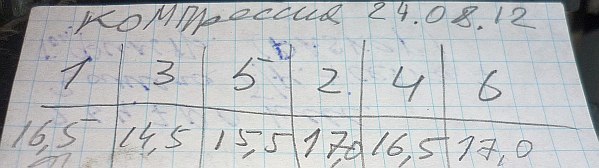 компрессия 24.08.12
1 3 5 2 4 6
16,5 14,5 15,5 17,0 16,5 17,0